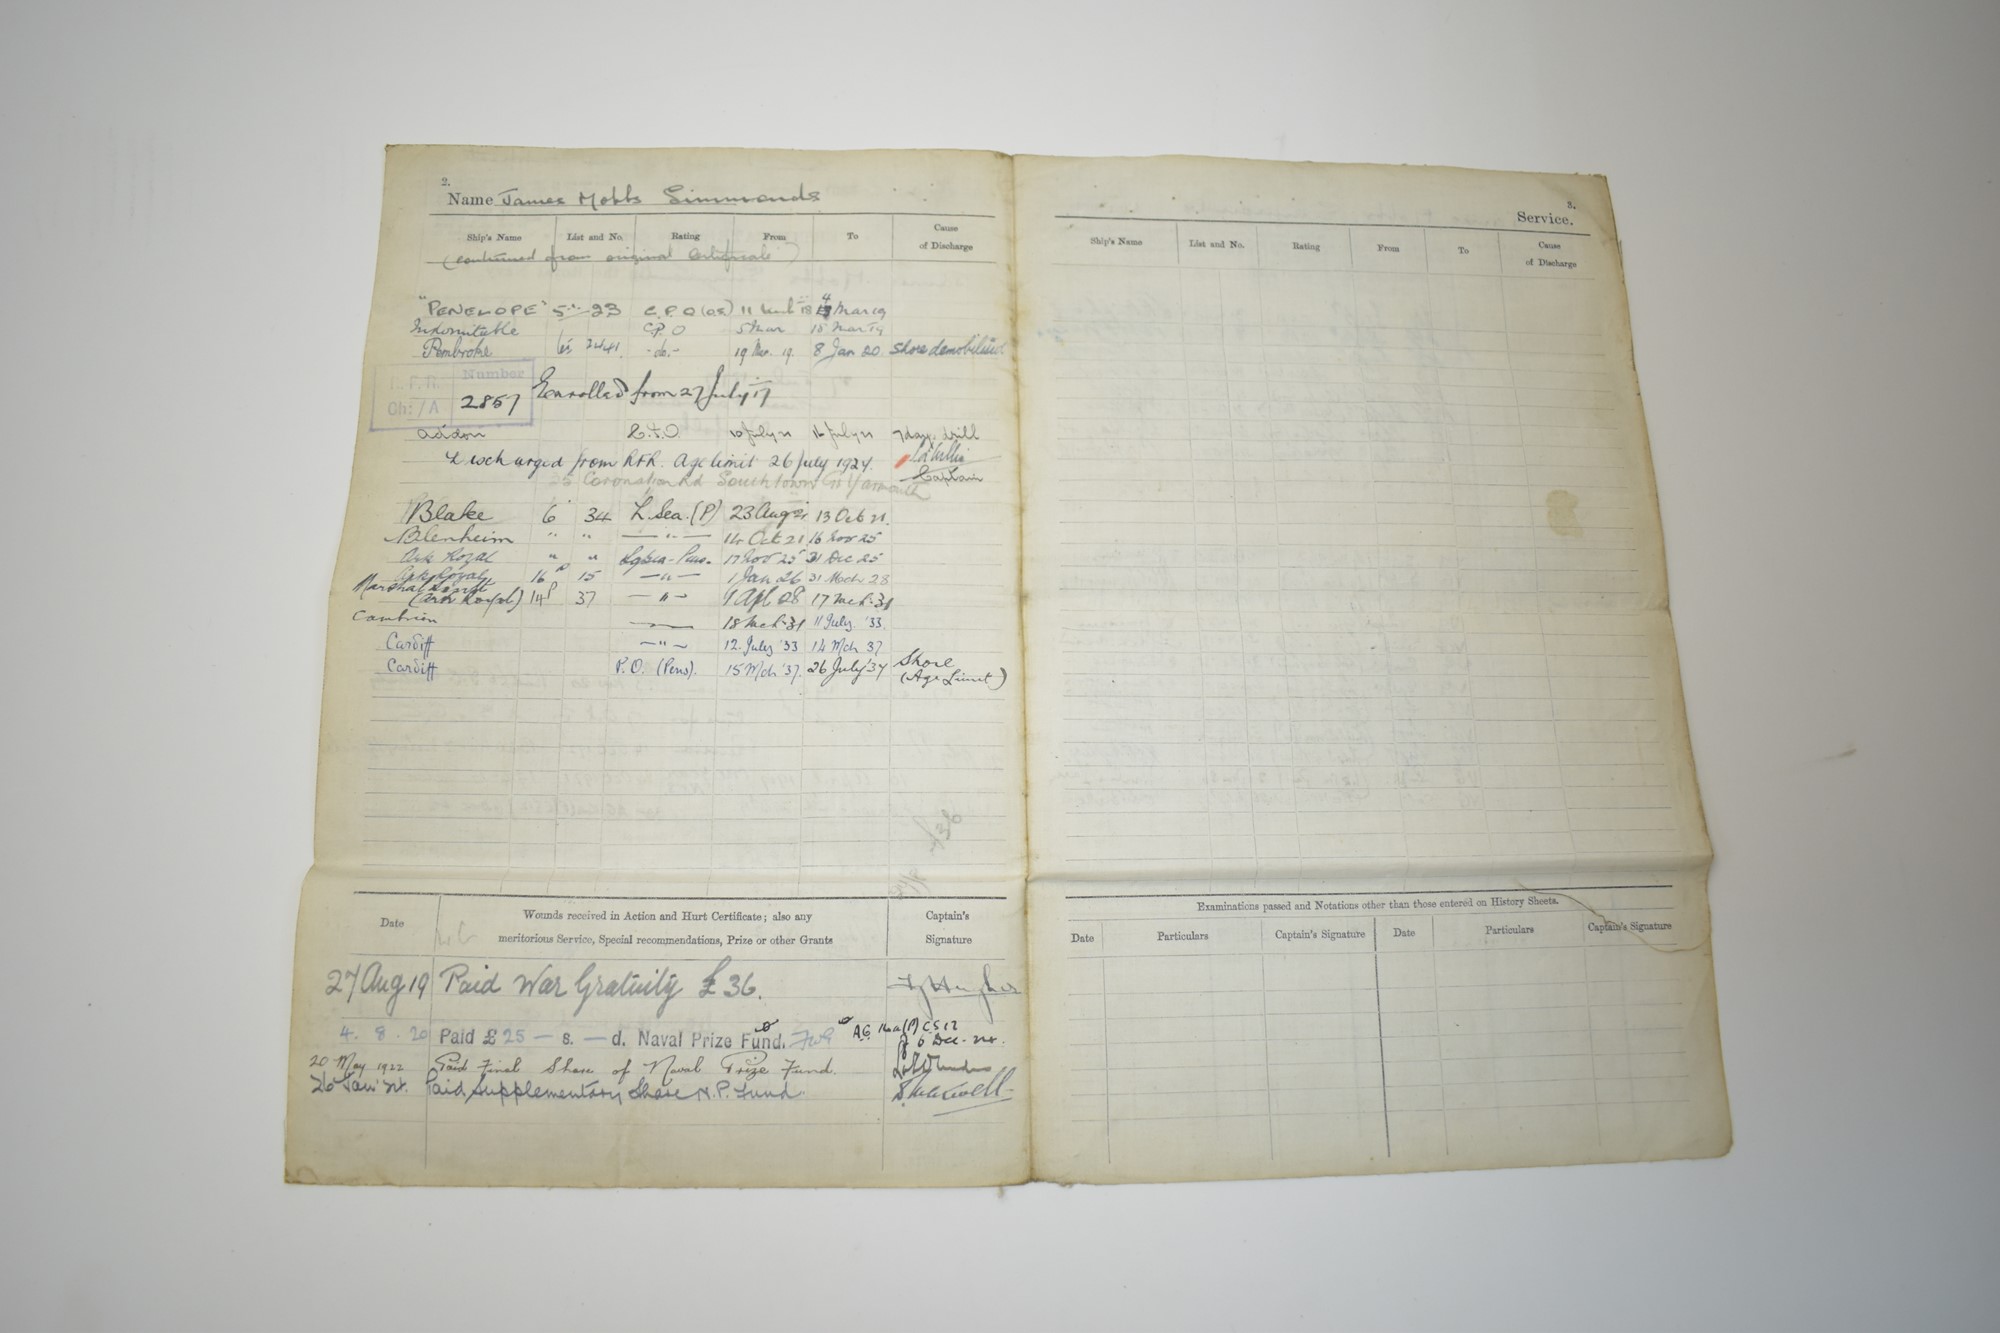 2.
Name James Mobbs Simmonds
Ship's Name List and No. Rating From To Cause of Discharge
(continued from original Certificate)
"PENELOPE" 5 23 C.P.O 11 18 4 Mar 19
Indomitable C.P.O 5 Mar 18 Mar 19
Pembroke 2441 -do.- 19 Mar. 19. 8 Jan 20 Shore demobilised
R.F.R. Number
Ch: / A 2857 Enrolled from 27 July 17
10 July 21 16 July 21 7 days drill
Discharged from RFR. Age limit 26 July 1924.
Captain
25 Coronation Rd Southtown Gt Yarmouth
Blake 6 34 L. Sea. (P) 23 Aug 21 13 Oct 21.
Blenheim " " — " — 14 Oct 21 16 Nov 25
Ark Royal " " Ldg Sea - Pens. 17 Nov 25 31 Dec 25
Ark Royal 16 15 — " — 1 Jan 26 31 Mch 28
Marshal Soult
(Ark Royal) 14 37 — " — 1 Apl 28 17 Mch. 31
Cambrian 18 Mch. 31 11 July. '33.
Cardiff — " — 12. July '33 14 Mch 37
Cardiff P.O. (Pens). 15 Mch '37. 26 July '37 Shore
(Age Limit)
Date Wounds received in Action and Hurt Certificate; also any meritorious Service, Special recommendations, Prize or other Grants Captain's Signature
27 Aug 19 Paid War Gratuity £36.
4. 8. 20 Paid £ 25 — s. — d. Naval Prize Fund.
6 Dec.
20 May 1922 Paid Final Share of Naval Prize Fund.
26 Jan Paid Supplementary Share N.P. Fund.
3.
Service.
Ship's Name List and No. Rating From To Cause of Discharge
Examinations passed and Notations other than those entered on History Sheets.
Date Particulars Captain's Signature Date Particulars Captain's Signature